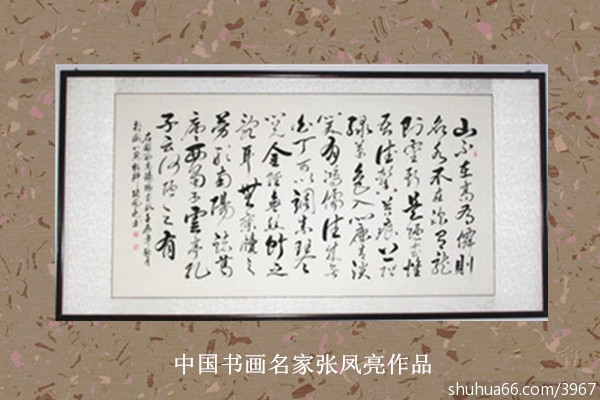 山不在高有僊則
名水不在深有龍
則靈斯是陋室惟
吾德馨苔痕上階
綠草色入簾青談
笑有鴻儒往來無
白丁可以調素琴
閱金經無絲竹之
亂耳無案牘之
勞形南陽諸葛
廬西蜀子雲亭孔
子云何陋之有
中国书画名家张凤亮作品
shuhua66.com/3967